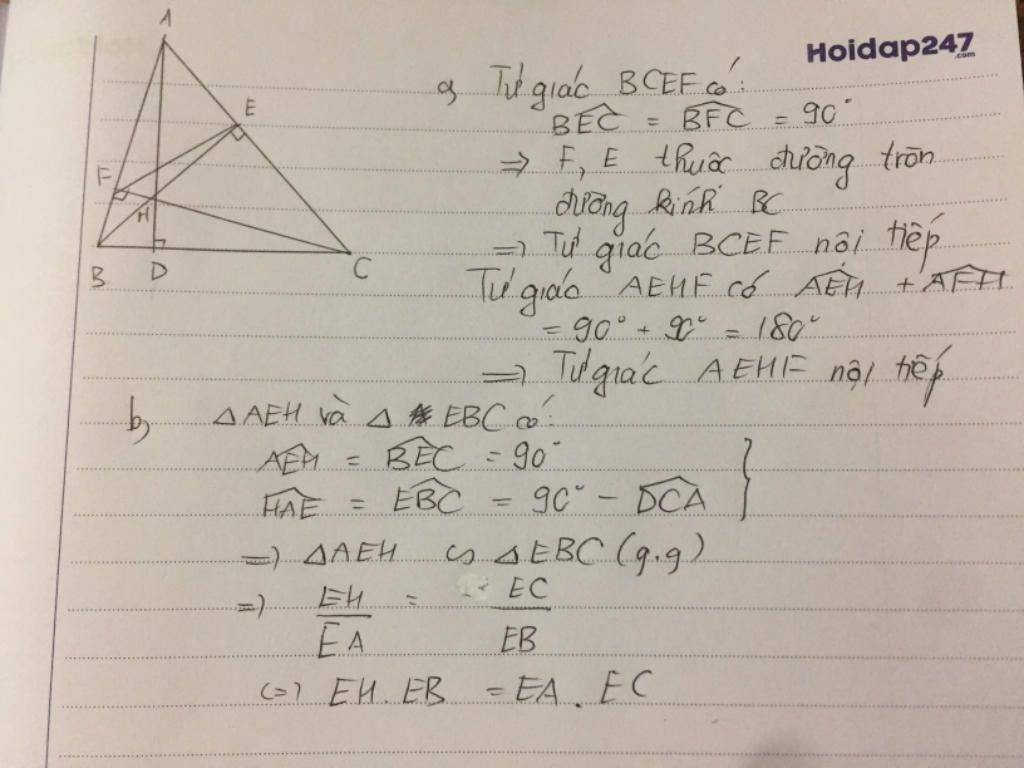 Hoidap247
.com
A
E
F
H
B
D
C
a) Tứ giác BCEF có:
BEC = BFC = 90°
=> F, E thuộc đường tròn
đường kính BC
=> Tứ giác BCEF nội tiếp
Tứ giác AEHF có AEH + AFH
= 90° + 90° = 180°
=> Tứ giác AEHF nội tiếp
b) △AEH và △ EBC có:
AEH = BEC = 90°
HAE = EBC = 90° - DCA }
=> △AEH ∽ △EBC (g.g)
=> EH/EA = EC/EB
<=> EH.EB = EA.EC